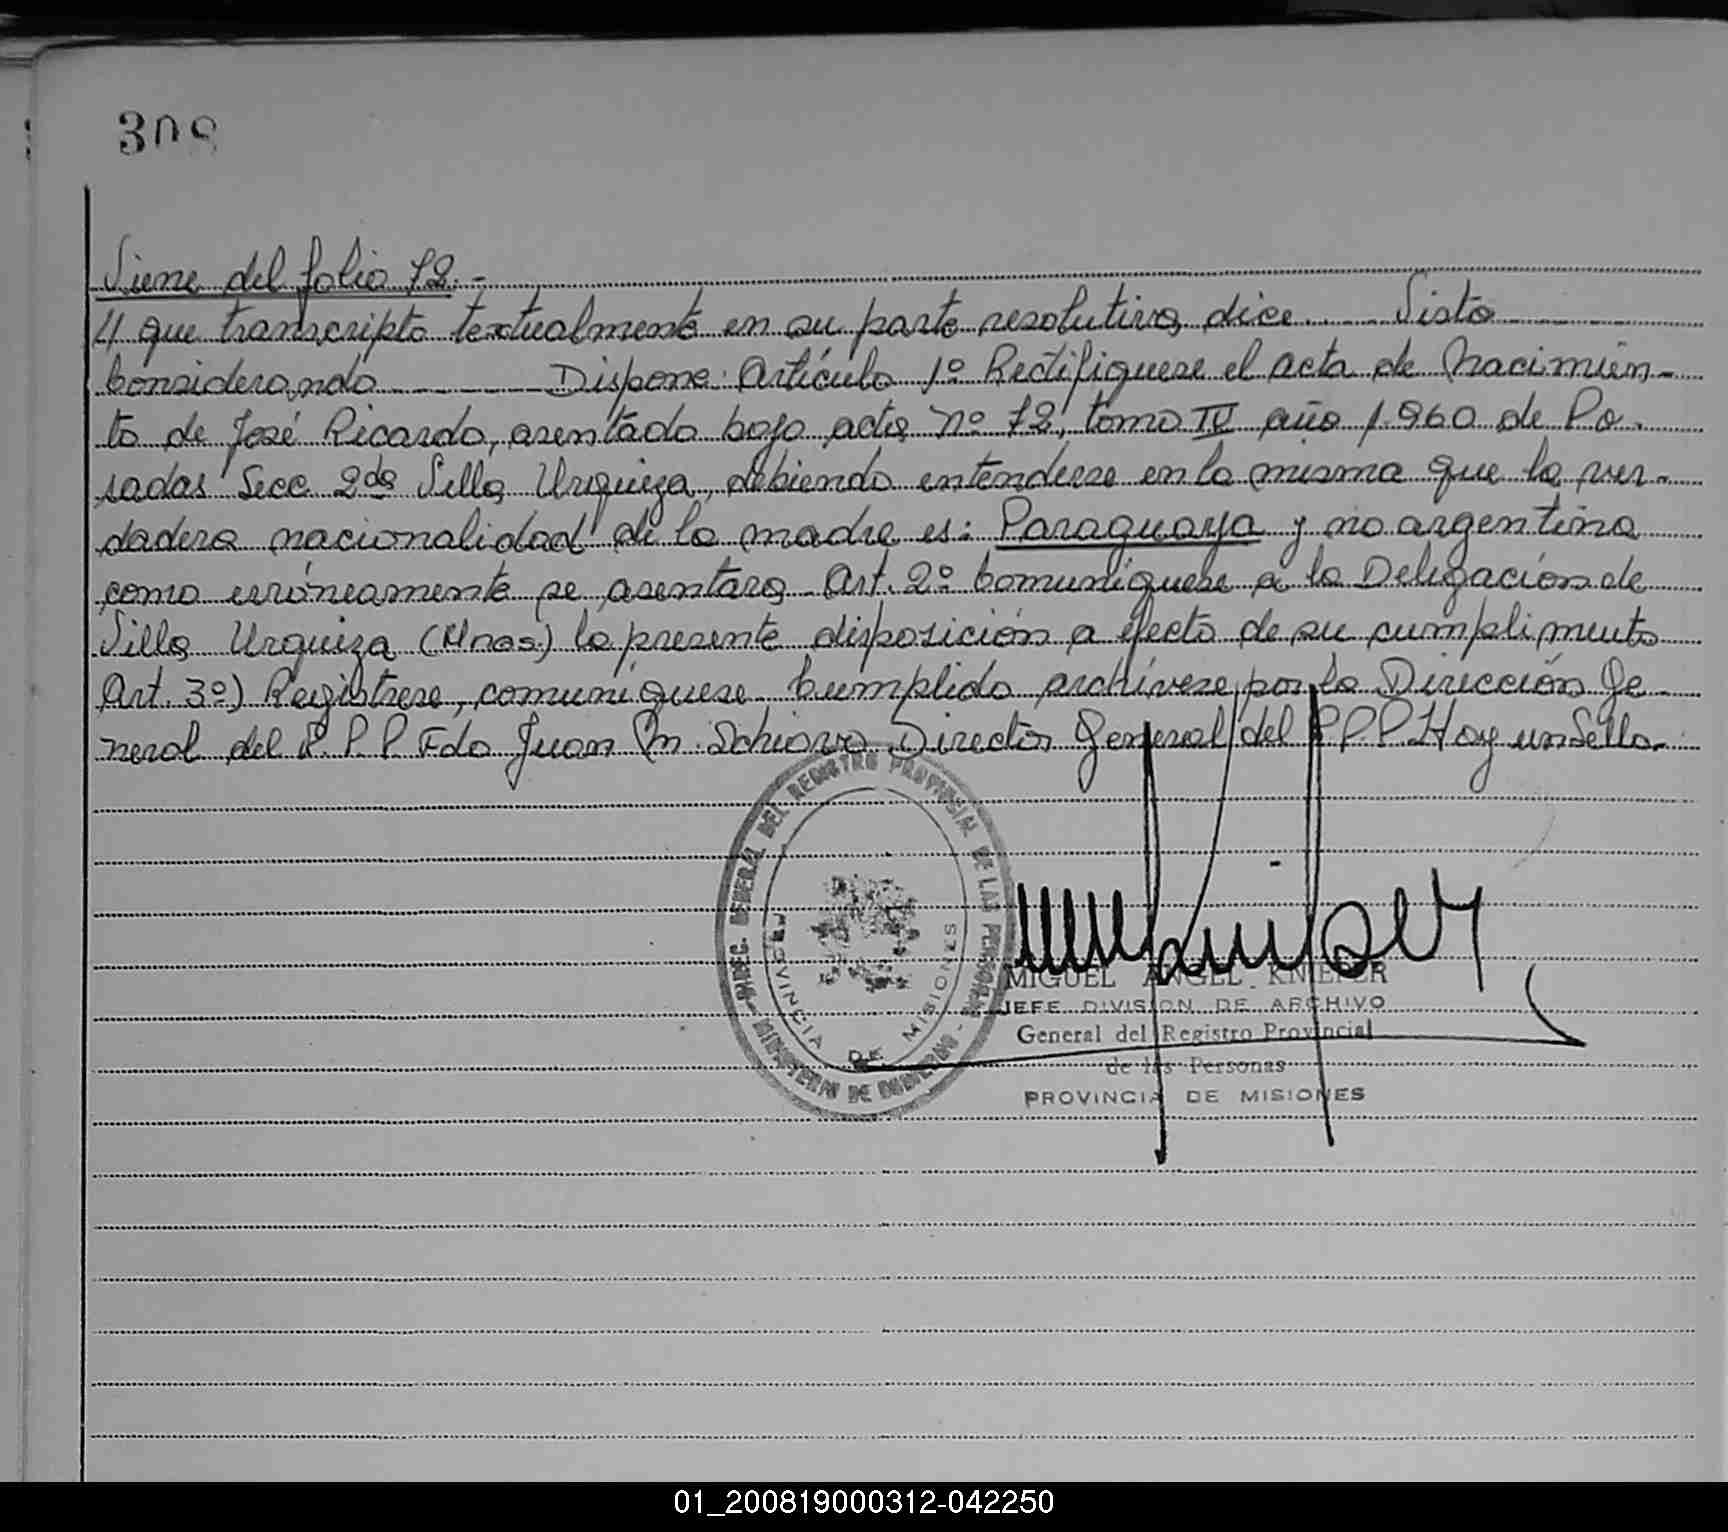 308
Viene del folio 72.-
y que transcripto textualmente en su parte resolutiva dice ..... Visto
Considerando ............ Dispone: Artículo 1º Rectifiquese el acta de Nacimien-
to de José Ricardo, asentado bajo acta Nº 72, tomo IV año 1.960 de Po-
sadas Secc 2da Villa Urquiza, debiendo entenderse en la misma que la ver-
dadera nacionalidad de la madre es: Paraguaya y no argentina
como erróneamente se asentara. Art. 2º Comuniquese a la Delegación de
Villa Urquiza (Mnes.) la presente disposición a efecto de su cumplimento
Art. 3º) Registrese, comuníquese. Cumplido archívese por la Dirección Ge-
neral del R.P.P. Fdo Juan M. Schiavo Director General del R.P.P. Hay un Sello.-
DIREC. GENERAL DEL REGISTRO PROVINCIAL DE LAS PERSONAS
MINISTERIO DE GOBIERNO
PROVINCIA DE MISIONES
MIGUEL ANGEL KNIEPER
JEFE DIVISION DE ARCHIVO
General del Registro Provincial
de las Personas
PROVINCIA DE MISIONES
01_200819000312-042250